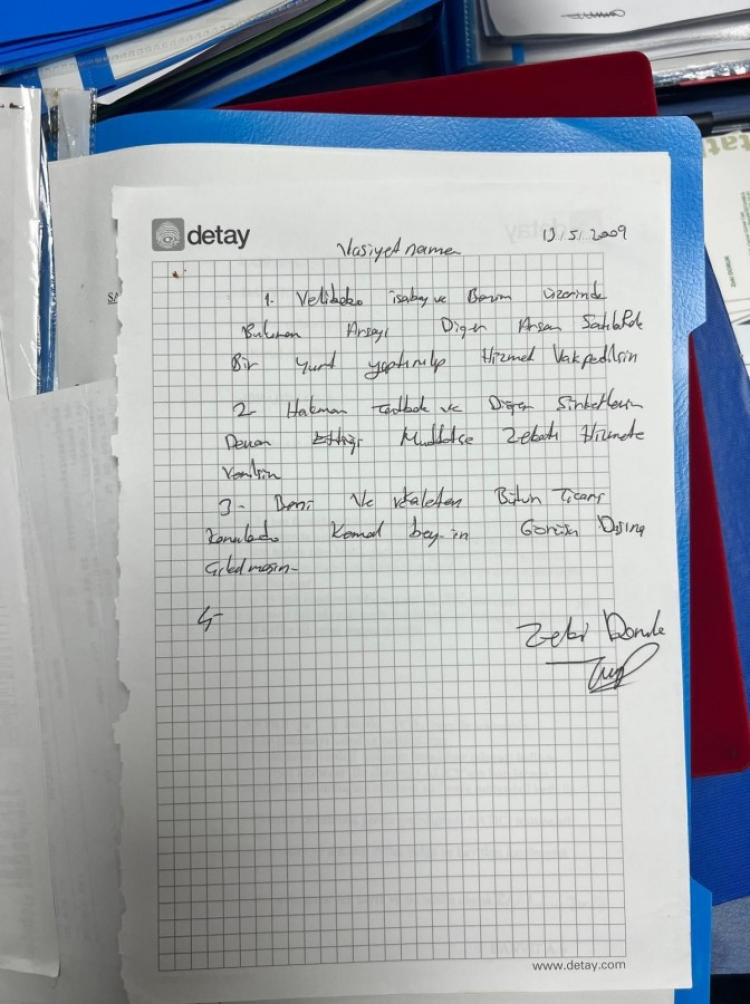 detay
Vasiyet name
13.5.2009
1. Velibaba isabey ve Benim üzerinde
Bulunan Arsayı Diğer Arsam Satılıp
Bir Yurt yaptırılıp Hizmet Vakfedilsin
2 Hakman ve Diğer Şirketlerin
Devam Ettiği Müddetce Zekatı Hizmete
Verilsin
3- Beni Ve vekaleten Bütün Ticari
konularda Kemal bey-in Görüşü Dışına
Çıkılmasın-
4-
Zeki
www.detay.com